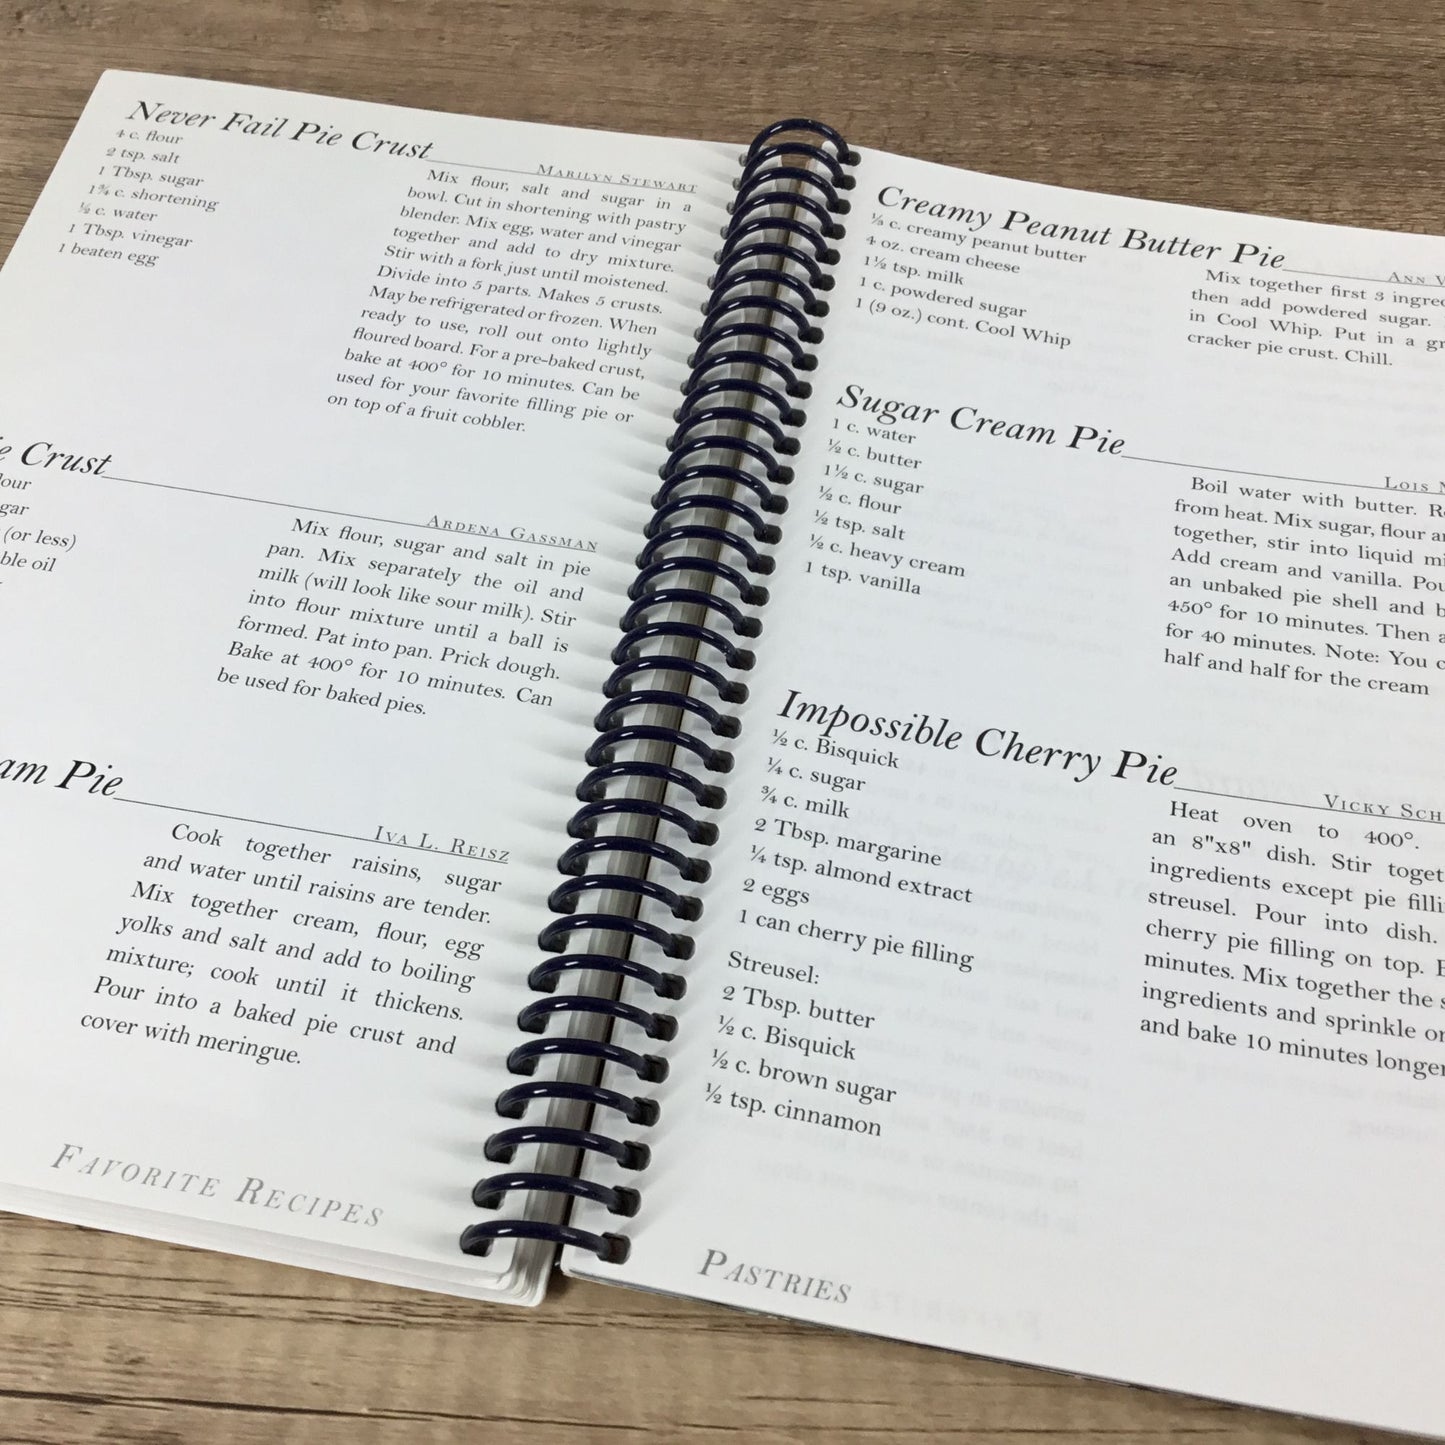 Never Fail Pie Crust
Marilyn Stewart
4 c. flour
2 tsp. salt
1 Tbsp. sugar
1¾ c. shortening
½ c. water
1 Tbsp. vinegar
1 beaten egg
Mix flour, salt and sugar in a
bowl. Cut in shortening with pastry
blender. Mix egg, water and vinegar
together and add to dry mixture.
Stir with a fork just until moistened.
Divide into 5 parts. Makes 5 crusts.
May be refrigerated or frozen. When
ready to use, roll out onto lightly
floured board. For a pre-baked crust,
bake at 400° for 10 minutes. Can be
used for your favorite filling pie or
on top of a fruit cobbler.
Crust
Ardena Gassman
(or less)
oil
Mix flour, sugar and salt in pie
pan. Mix separately the oil and
milk (will look like sour milk). Stir
into flour mixture until a ball is
formed. Pat into pan. Prick dough.
Bake at 400° for 10 minutes. Can
be used for baked pies.
Pie
Iva L. Reisz
Cook together raisins, sugar
and water until raisins are tender.
Mix together cream, flour, egg
yolks and salt and add to boiling
mixture; cook until it thickens.
Pour into a baked pie crust and
cover with meringue.
Favorite Recipes
Creamy Peanut Butter Pie
Ann
⅓ c. creamy peanut butter
4 oz. cream cheese
1½ tsp. milk
1 c. powdered sugar
1 (9 oz.) cont. Cool Whip
Mix together first 3
then add powdered sugar.
in Cool Whip. Put in a
cracker pie crust. Chill.
Sugar Cream Pie
Lois
1 c. water
½ c. butter
1½ c. sugar
½ c. flour
½ tsp. salt
½ c. heavy cream
1 tsp. vanilla
Boil water with butter.
from heat. Mix sugar, flour
together, stir into liquid
Add cream and vanilla.
an unbaked pie shell and
450° for 10 minutes. Then
for 40 minutes. Note: You
half and half for the cream
Impossible Cherry Pie
Vicky
½ c. Bisquick
¼ c. sugar
¾ c. milk
2 Tbsp. margarine
¼ tsp. almond extract
2 eggs
1 can cherry pie filling
Streusel:
2 Tbsp. butter
½ c. Bisquick
½ c. brown sugar
½ tsp. cinnamon
Heat oven to 400°.
an 8"x8" dish. Stir
ingredients except pie
streusel. Pour into dish.
cherry pie filling on top.
minutes. Mix together the
ingredients and sprinkle
and bake 10 minutes longer
Pastries